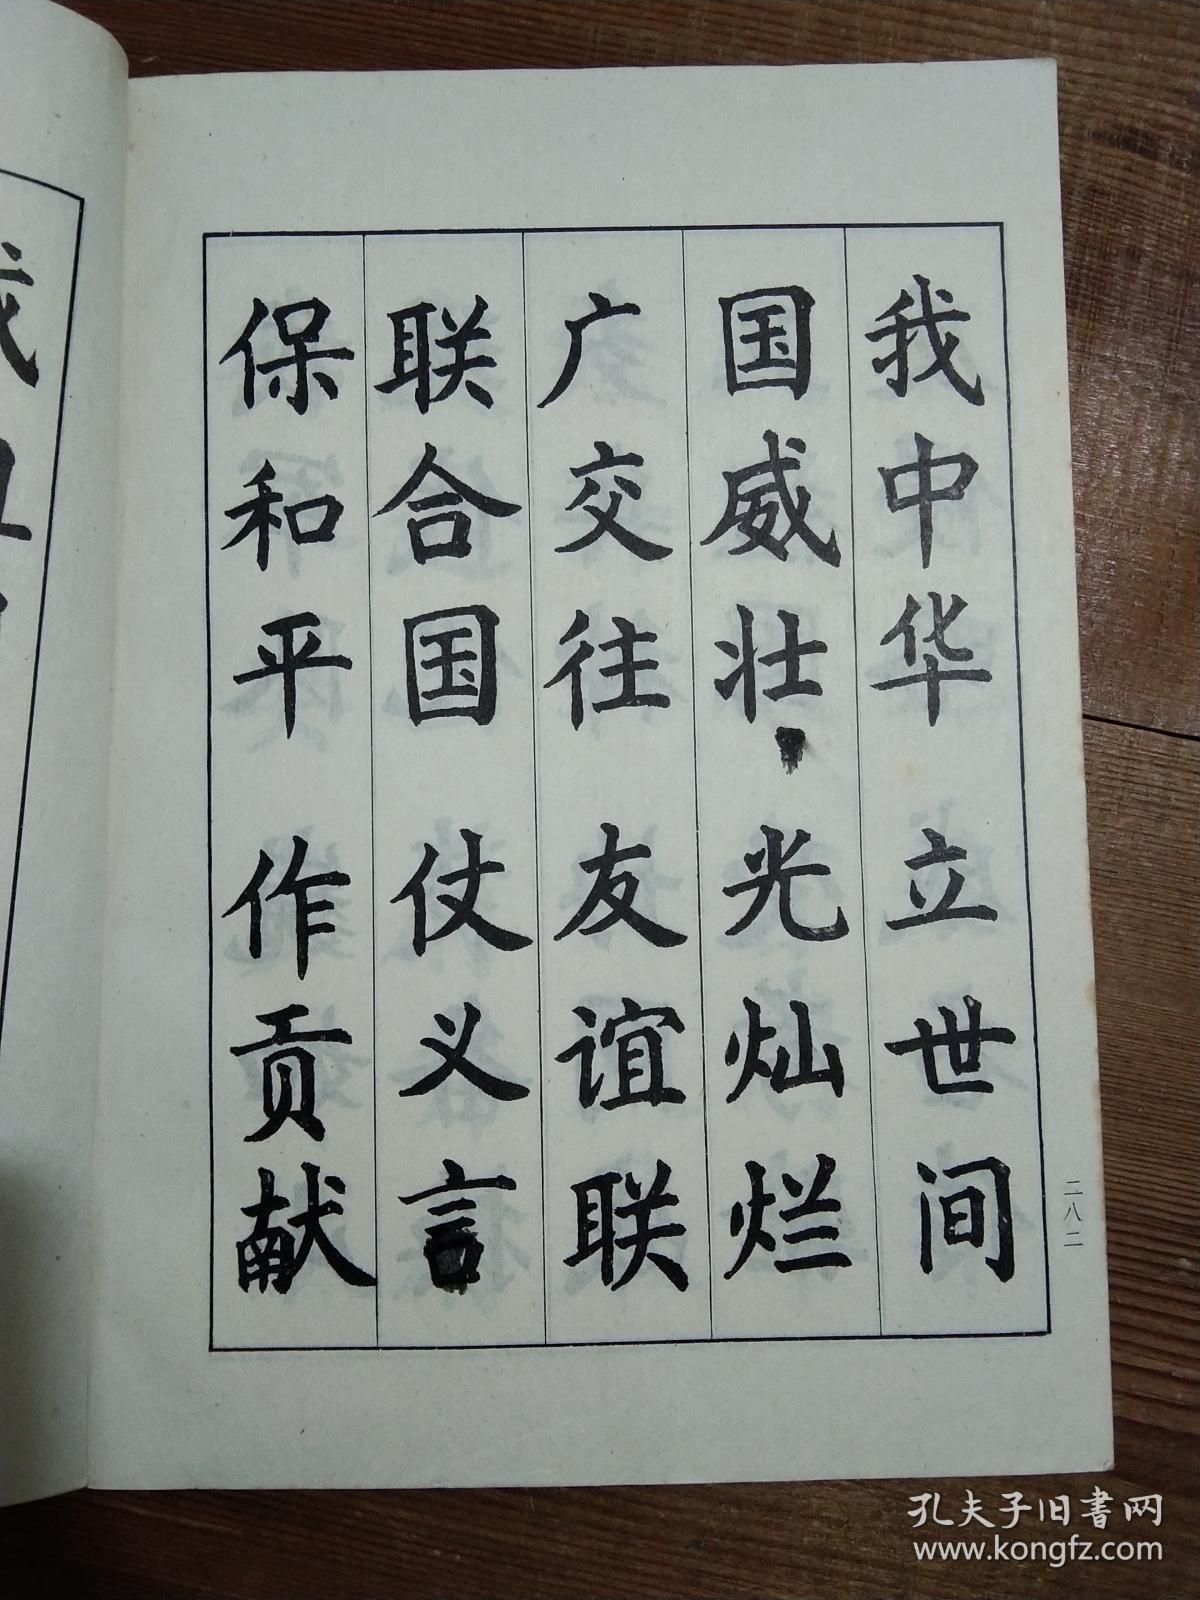 我中华 立世间
国威壮 光灿烂
广交往 友谊联
联合国 仗义言
保和平 作贡献
二八二
孔夫子旧書网
www.kongfz.com